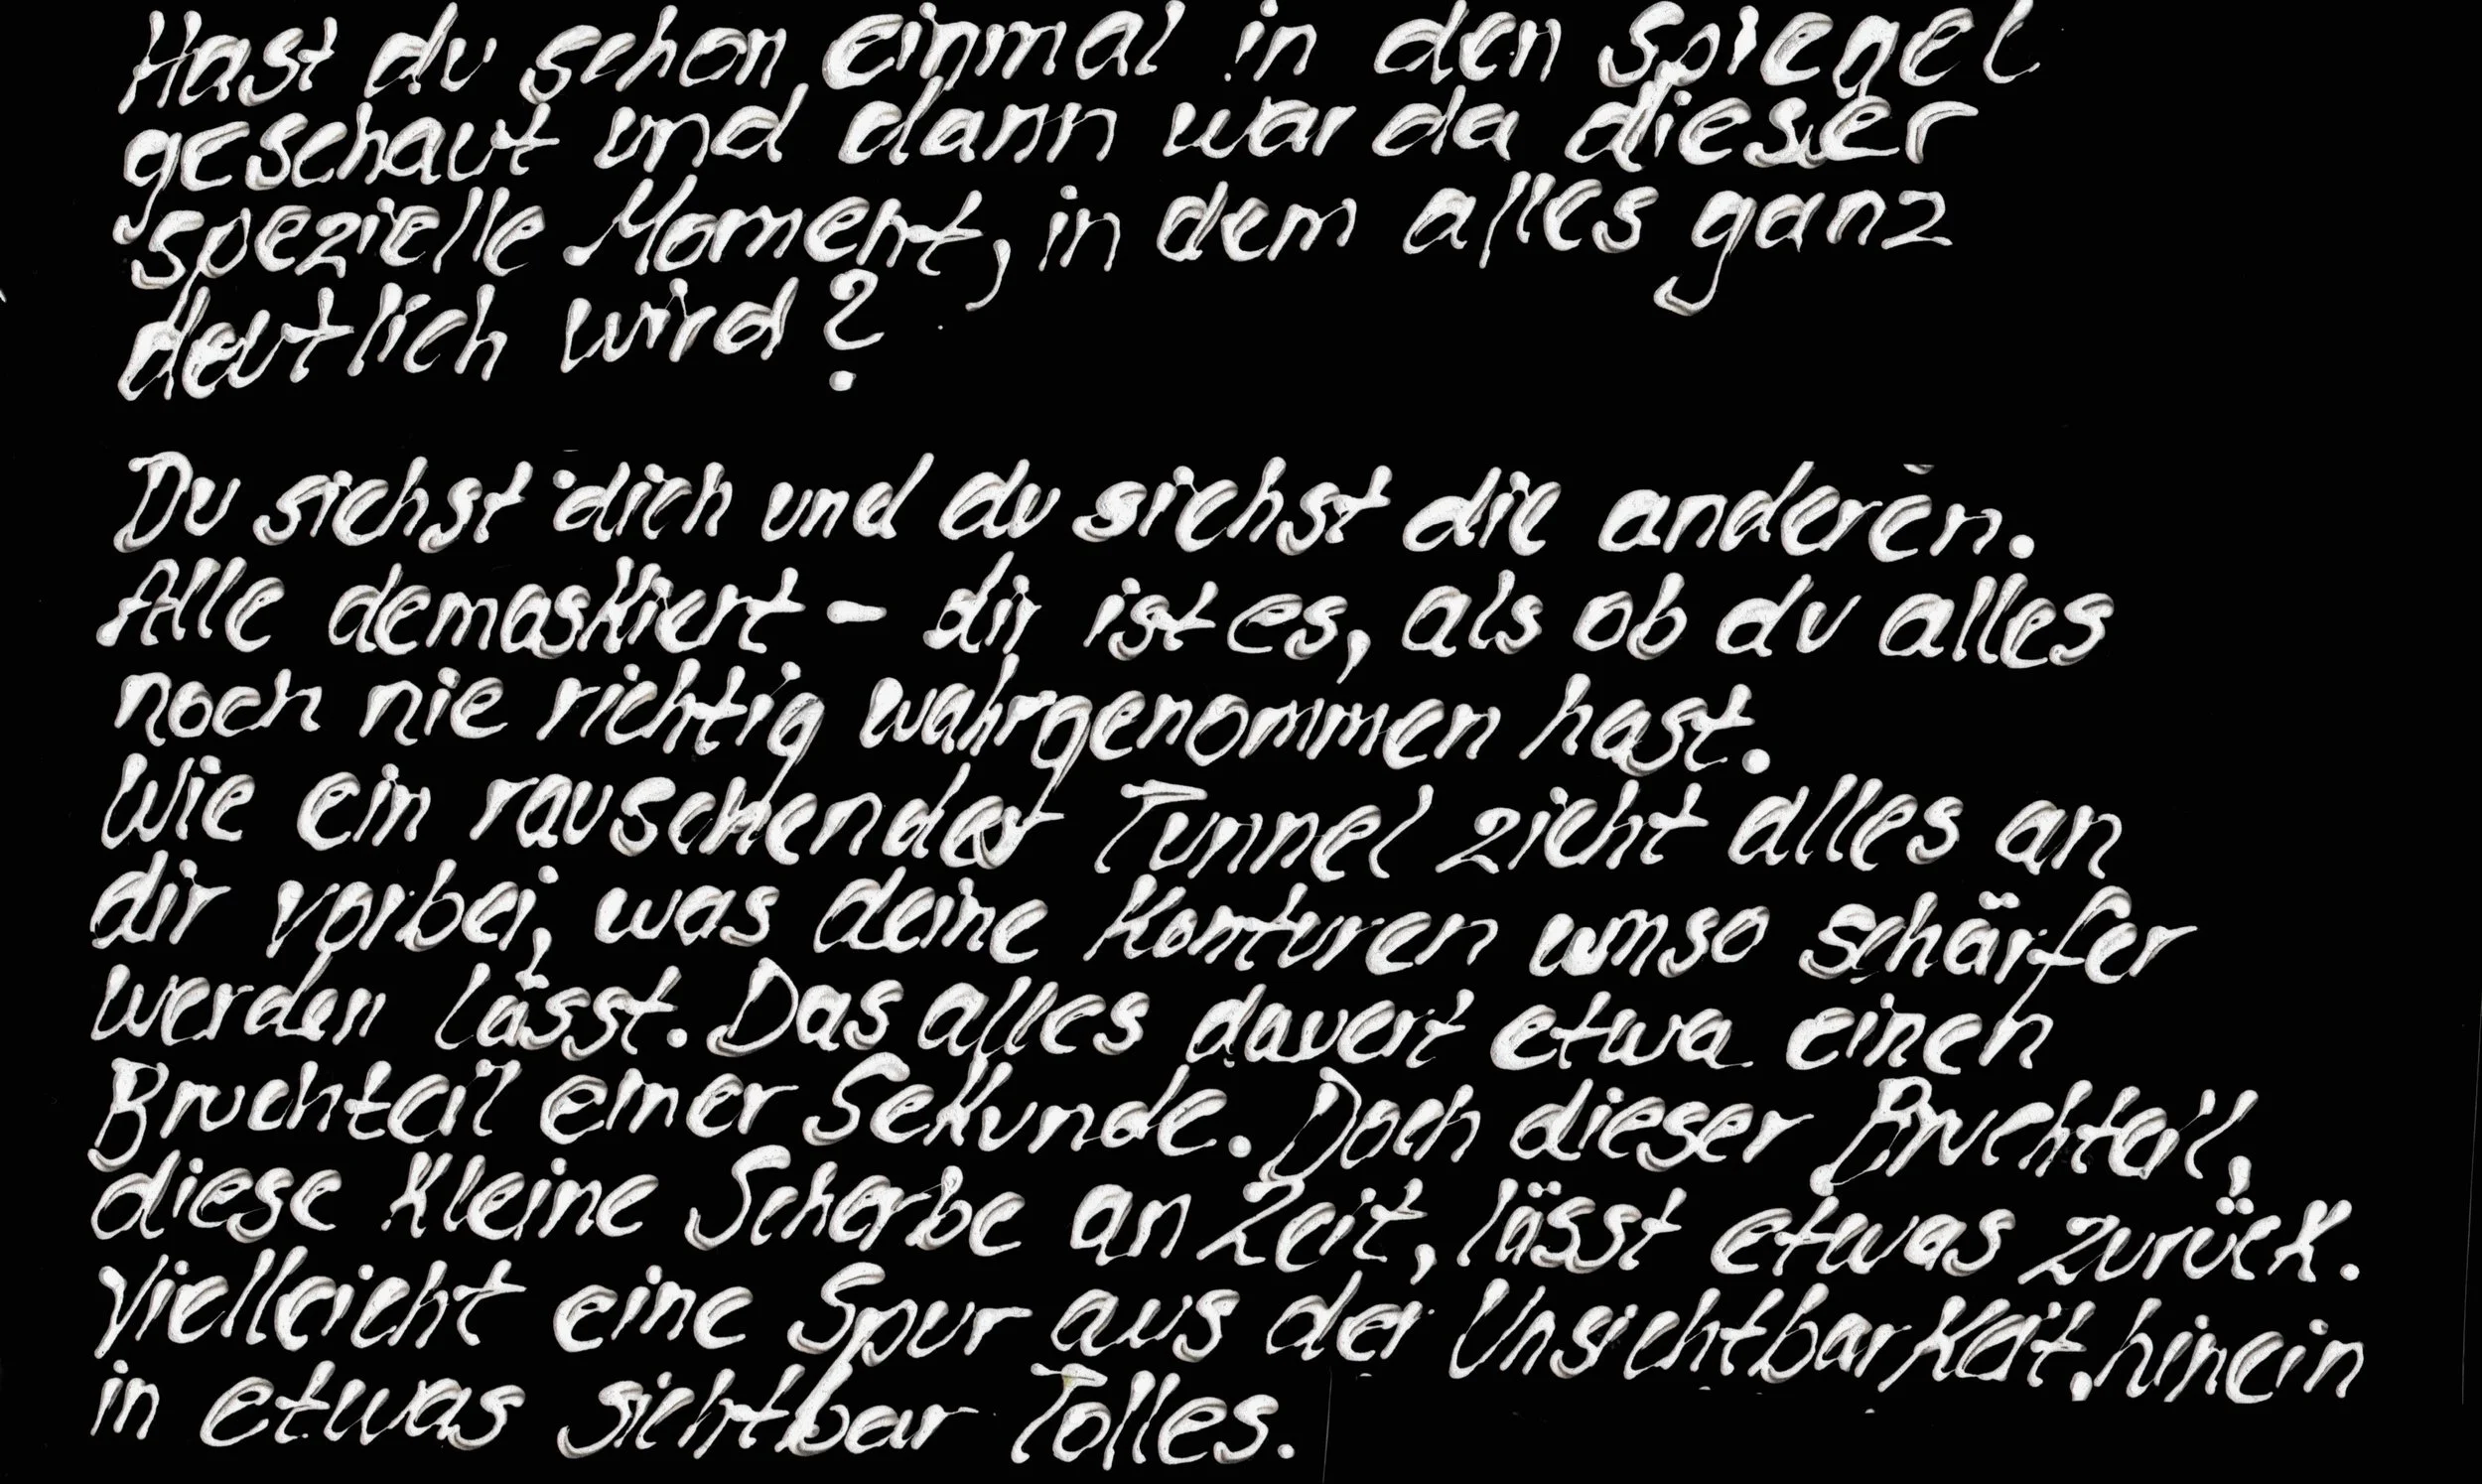 Hast du schon einmal in den Spiegel
geschaut und dann war da dieser
spezielle Moment, in dem alles ganz
deutlich wird?
Du siehst dich und du siehst die anderen.
Alle demaskiert – dir ist es, als ob du alles
noch nie richtig wahrgenommen hast.
Wie ein rauschender Tunnel zieht alles an
dir vorbei, was deine Konturen umso schärfer
werden lässt. Das alles dauert etwa einen
Bruchteil einer Sekunde. Doch dieser Bruchteil,
diese kleine Scherbe an Zeit, lässt etwas zurück.
Vielleicht eine Spur aus der Unsichtbarkeit, hinein
in etwas sichtbar Tolles.